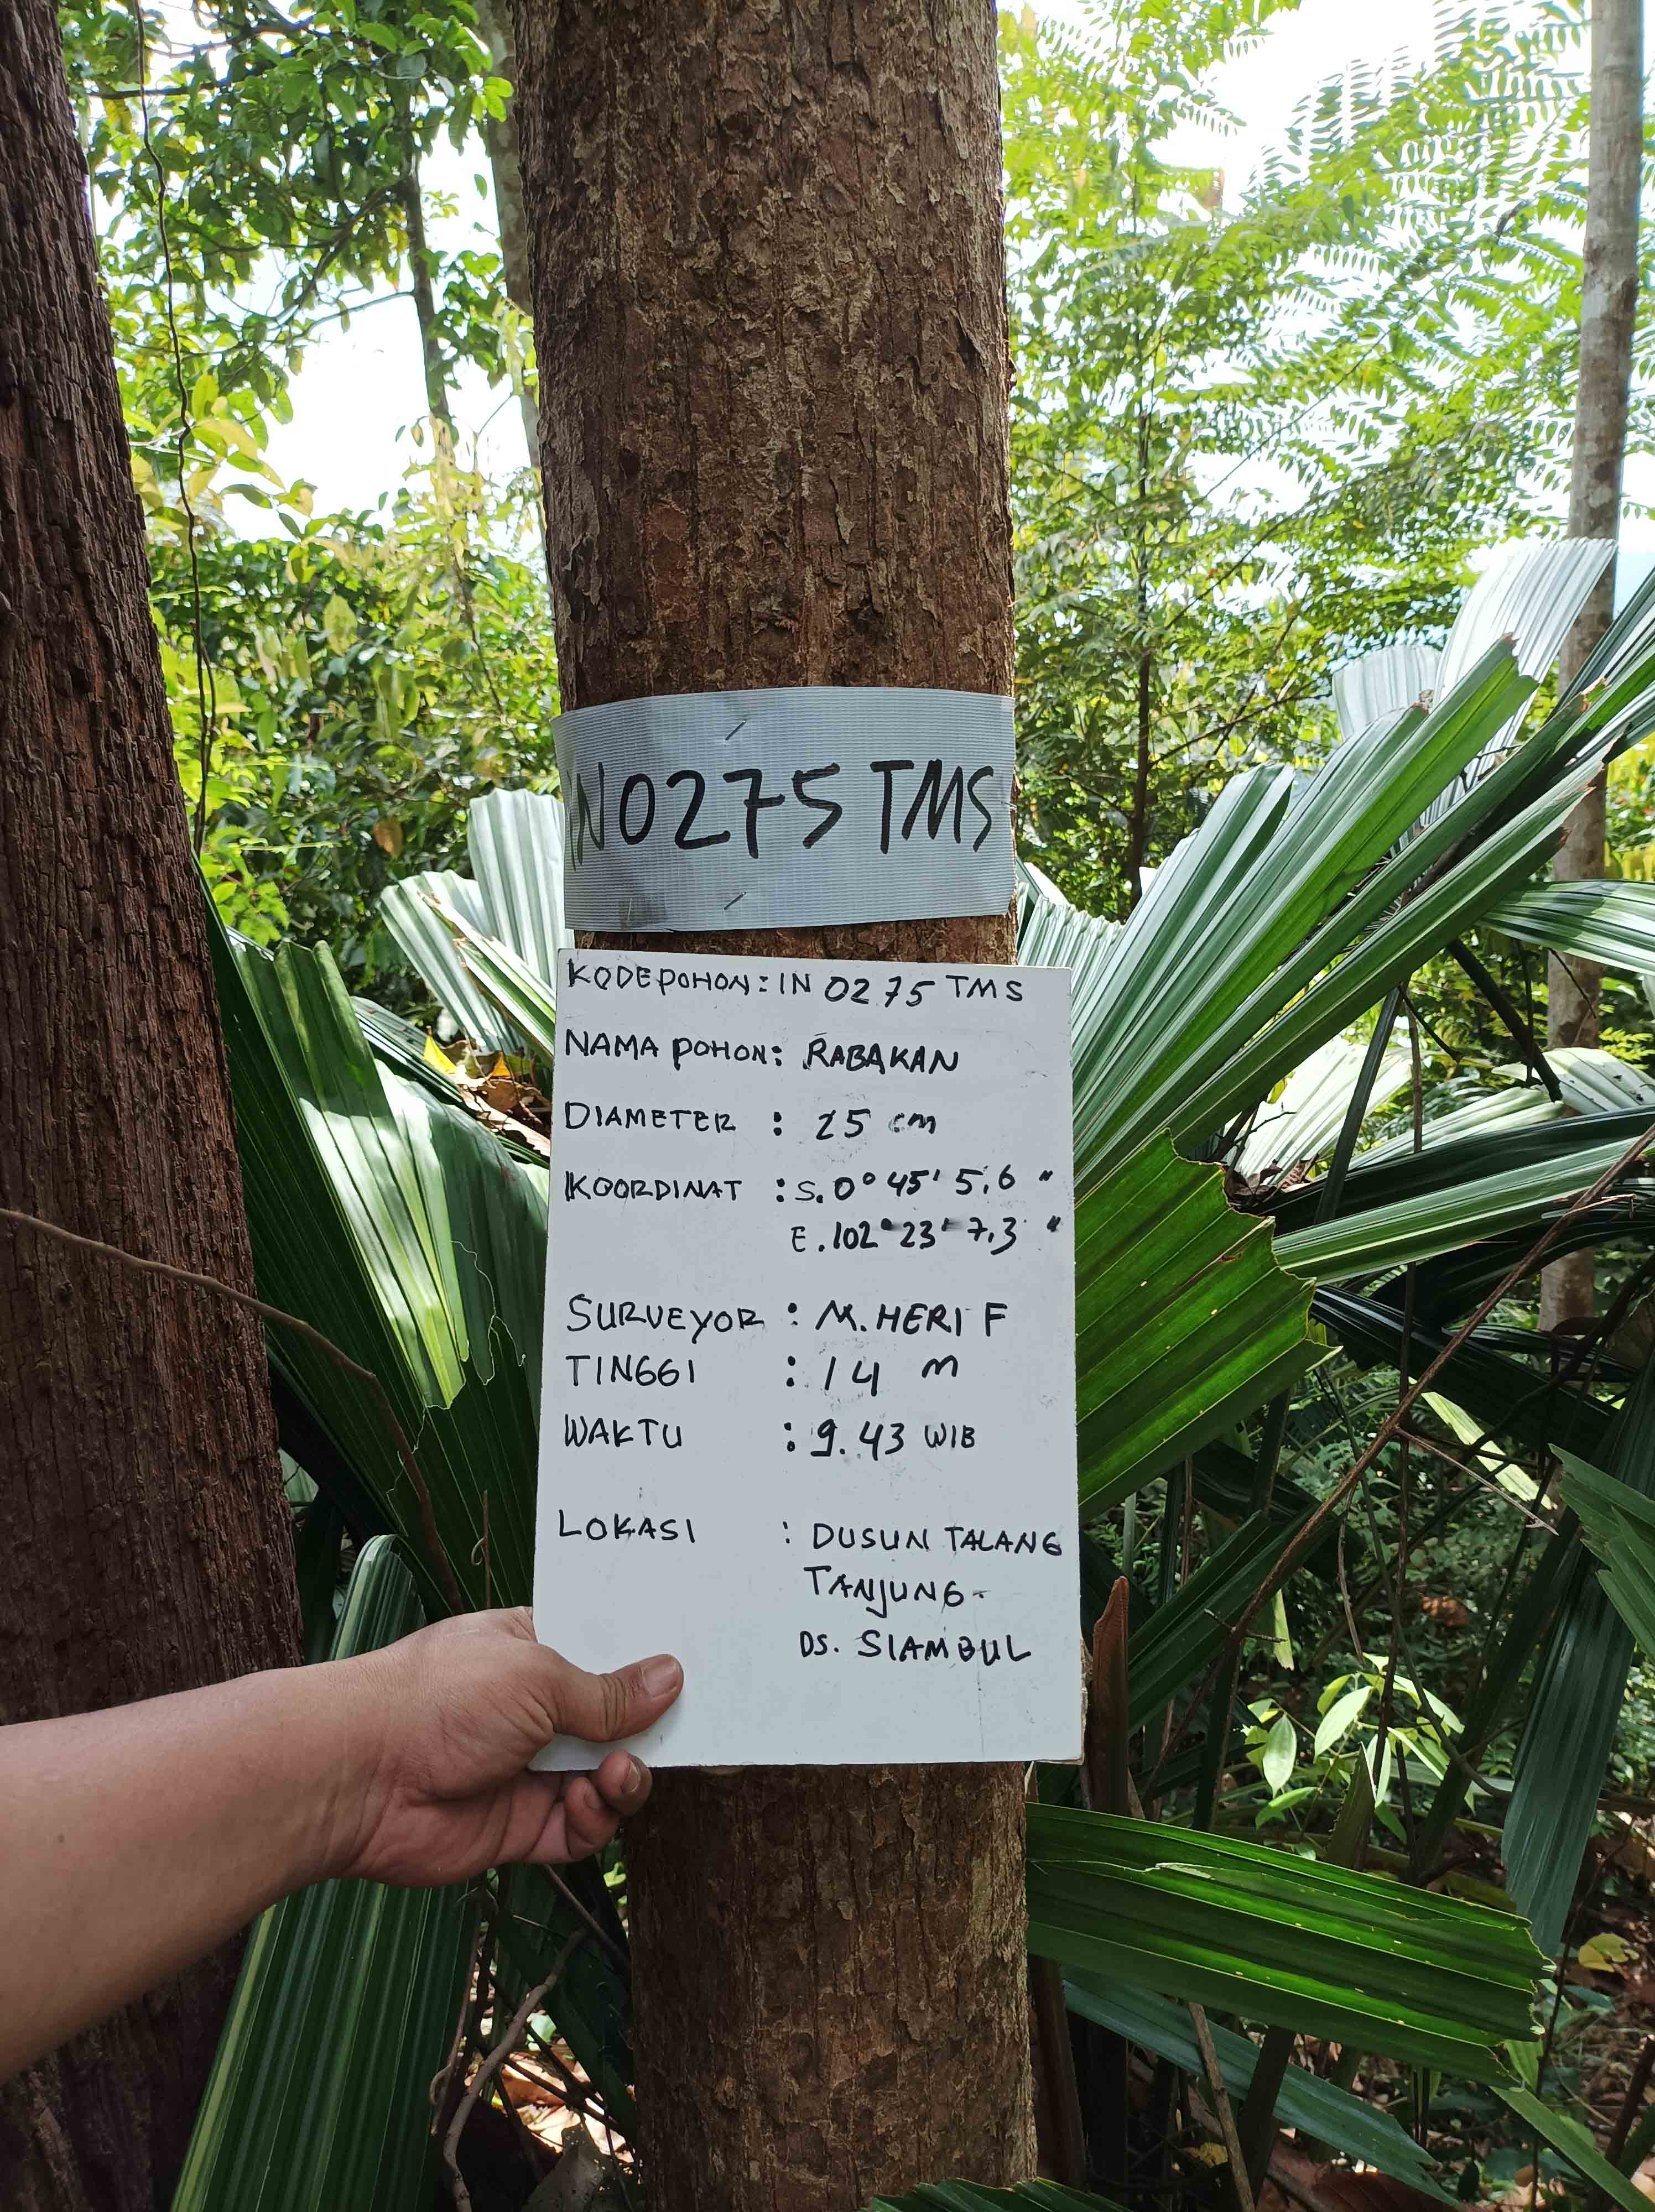 IN 0275 TMS
KODE POHON: IN 0275 TMS
NAMA POHON: RABAKAN
DIAMETER : 25 cm
KOORDINAT : S. 0° 45' 5,6 "
E. 102° 23' 7,3 "
SURVEYOR : M. HERI F
TINGGI : 14 m
WAKTU : 9.43 WIB
LOKASI : DUSUN TALANG
TANJUNG-
DS. SIAMBUL